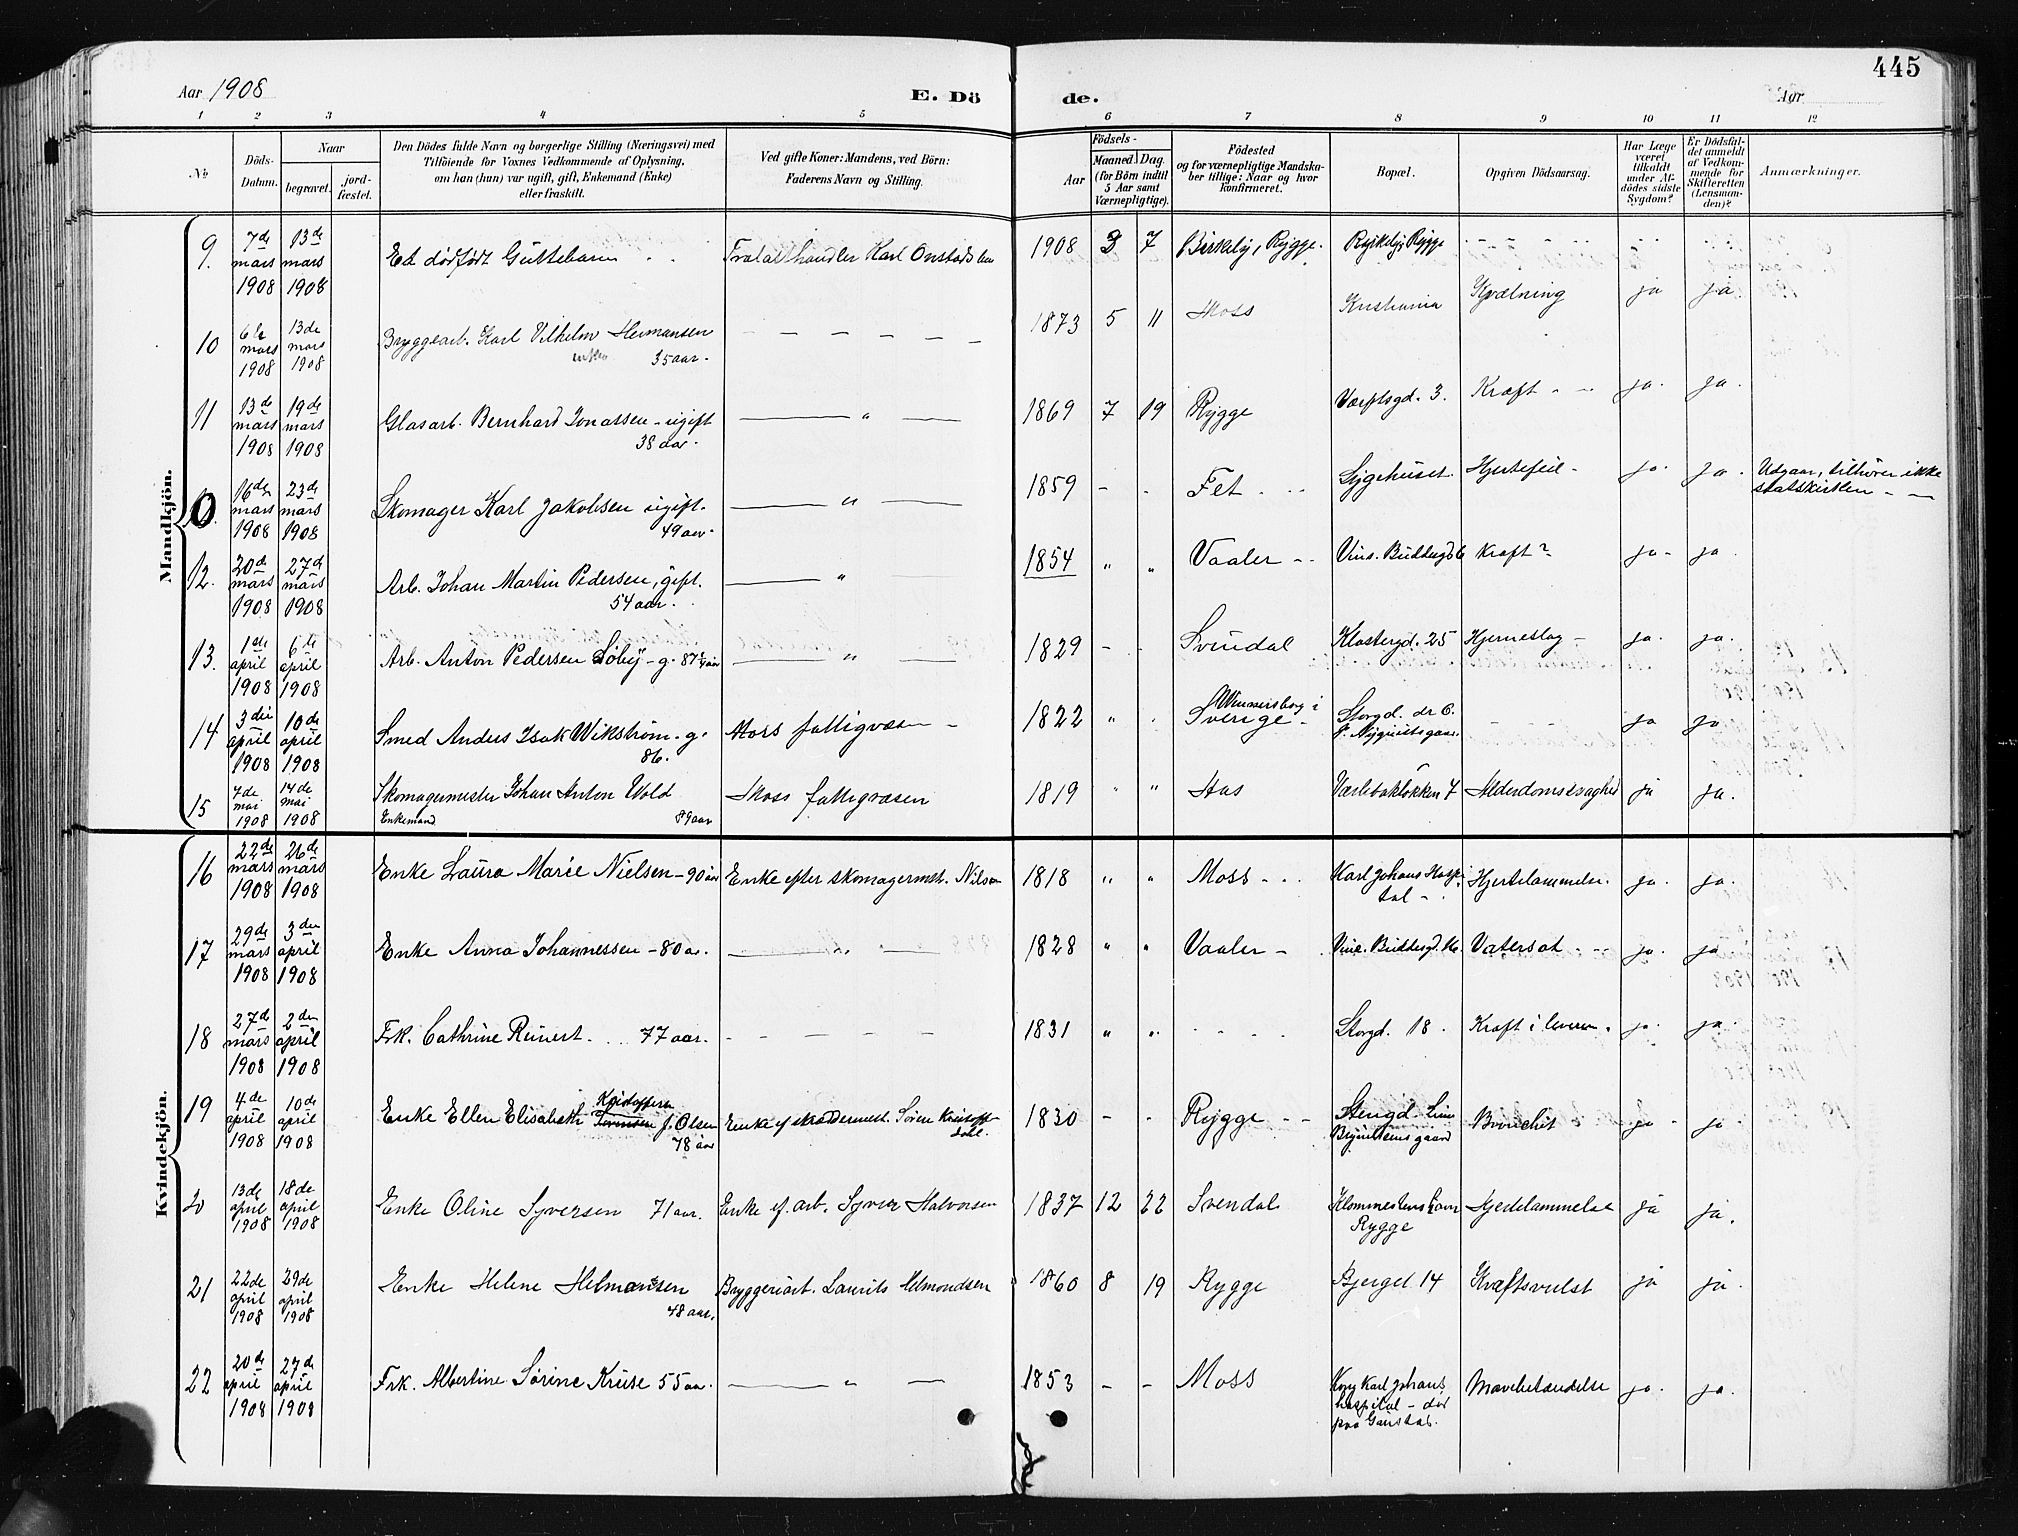 445
Aar 1908
E. Dö
de.
Aar
1 2 3 4 5 6 7 8 9 10 11 12
№
Döds-Datum.
Naar
begravet.
jord-fæstet.
Den Dödes fulde Navn og borgerlige Stilling (Næringsvei) med
Tilföiende for Voxnes Vedkommende af Oplysning,
om han (hun) var ugift, gift, Enkemand (Enke)
eller fraskilt.
Ved gifte Koner: Mandens, ved Börn:
Faderens Navn og Stilling.
Födsels-
Aar
Maaned. Dag.
(for Börn indtil
5 Aar samt
Værnepligtige).
Födested
og for værnepligtige Mandska-
ber tillige: Naar og hvor
konfirmeret.
Bopæl.
Opgiven Dödsaarsag.
Har Læge
været
tilkaldt
under Af-
dödes sidste
Sygdom?
Er Dödsfal-
det anmeldt
af Vedkom-
mende for
Skifteretten
(Lensman-
den)?
Anmærkninger.
Mandkjön.
9. 7de mars 1908 13de mars 1908 Et dødfødt Guttebarn Karl 1908 3 7 Birkely, Rygge. Rygge
10 mars 1908 13de mars 1908 Bryggearb. Karl Vilhelm Hermansen 35 aar. 1873 5 11 Moss Kristiania Kvælning ja ja
11 13de mars 1908 19de mars 1908 Glasarb. Bernhard Jonassen - ugift 38 aar. — " — 1869 7 19 Rygge Værftsgd. 3. Kræft ja. ja.
0 16de mars 1908 23de mars 1908 Skomager Karl Jakobsen ugift. 49 aar. — " — 1859 - - Fet Sygehuset. Hjertefeil - ja. ja. Udgaar, tilhører ikke
statskirken
12. 20de mars 1908 27de mars 1908 Arb. Johan Martin Pedersen, gift. 54 aar. — " — 1854 " " Vaaler Kræft? ja ja
13. 1ste april 1908 6te april 1908 Arb. Anton Pedersen Søby - g. — " — 1829 - - Svindal Klostergd. 25 Hjerneslag - ja. ja.
14 3die april 1908 10de april 1908 Smed Anders Isak Wikstrøm - g. 86. Moss fattigvæsen - 1822 " " Sverige - Storgd. ja ja
15 7de mai 1908 14de mai 1908 Skomagermester Johan Anton Wold
Enkemand 89 aar Moss fattigvæsen 1819 " " Aas Værlebakløkken 7 Alderdomssvaghed ja ja.
Kvindekjön.
16 22de mars 1908 26de mars 1908 Enke Laura Marie Nielsen - 90 aar Enke efter skomagermst. Nilsen 1818 " " Moss Karl Johans Hospital - Hjertelammelse. ja. ja.
17 29de mars 1908 3die april 1908 Enke Anna Johannessen - 80 aar. — " — 1828 " " Vaaler - Vatersot ja. ja
18 27de mars 1908 2den april 1908 Frk. Cathrine Reinert. 77 aar. 1831 " " Storgd. 18. Kræft i leveren. ja. ja.
19 4de april 1908 10de april 1908 Enke Ellen Elisabeth Kristoffersen f. Olsen 78 aar Enke ef skræddermest. Søren 1830 - - Rygge Stengd. Bronchit ja ja
20 13de april 1908 18de april 1908 Enke Oline Syversen 71 aar. Enke ef. arb. Syver Halvorsen 1837 12 22 Svendal Rygge Hjertelammelse ja ja.
21 22de april 1908 29de april 1908 Enke Helene Helmansen 48 aar. Bryggeriarb. Laurits Helmondsen 1860 8 19 Rygge Bjerget 14 Kræftsvulst ja ja.
22 20de april 1908 27de april 1908 Frk. Albertine Sørine Kruse 55 aar. — " — 1853 - - Moss Kong Karl Johans
hospital - død
paa Gaustad. Mavebetændelse ja. ja.